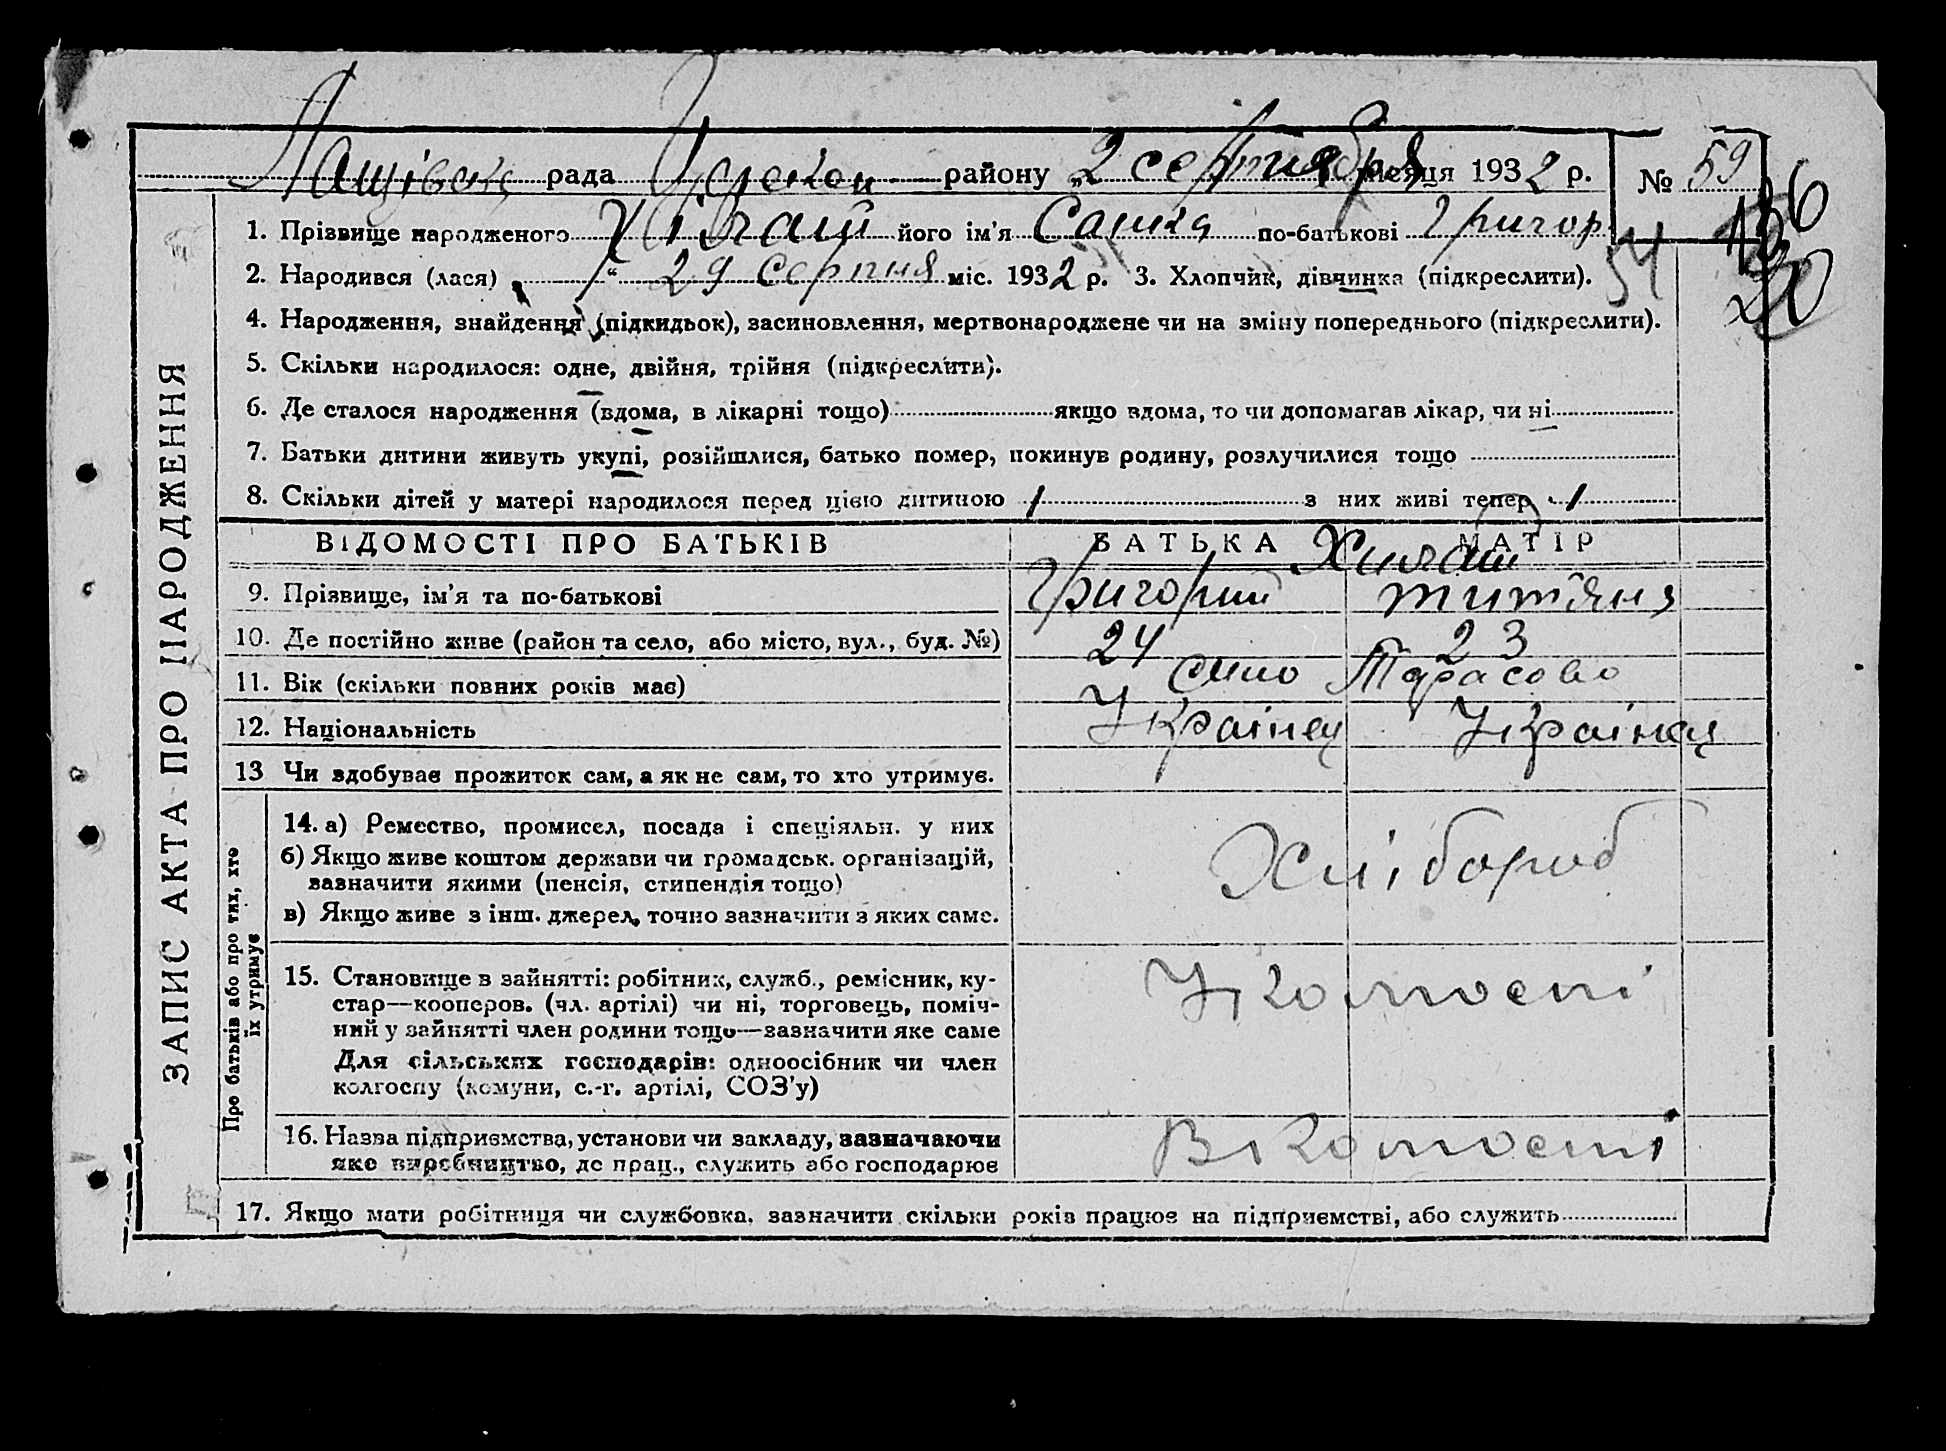 рада района району „2 сертября місяця 1932 р. № 59
136
1. Прізвище народженого його ім'я Санка по-батькові Григор
54
20
2. Народився (лася) „ “ 29 серпня міс. 1932 р. 3. Хлопчик, дівчинка (підкреслити).
4. Народження, знайдення (підкидьок), засиновлення, мертвонароджене чи на зміну попереднього (підкреслити).
5. Скільки народилося: одне, двійня, трійня (підкреслити).
6. Де сталося народження (вдома, в лікарні тощо) якщо вдома, то чи допомагав лікар, чи ні
7. Батьки дитини живуть укупі, розійшлися, батько помер, покинув родину, розлучилися тощо
8. Скільки дітей у матері народилося перед цією дитиною 1 з них живі тепер 1
ВІДОМОСТІ ПРО БАТЬКІВ БАТЬКА МАТІР
9. Прізвище, ім'я та по-батькові Григорий
10. Де постійно живе (район та село, або місто, вул., буд. №) 24 23
11. Вік (скільки повних років має) село Тарасово
12. Національність Українец Українця
13 Чи здобуває прожиток сам, а як не сам, то хто утримує.
14. а) Ремество, промисел, посада і спеціяльн. у них
б) Якщо живе коштом держави чи громадськ. організацій,
зазначити якими (пенсія, стипендія тощо)
в) Якщо живе з інш. джерел, точно зазначити з яких саме.
Хлібороб
15. Становище в зайнятті: робітник, служб., ремісник, ку-
стар—кооперов. (чл. артілі) чи ні, торговець, поміч-
ний у зайнятті член родини тощо—зазначити яке саме
Для сільських господарів: одноосібник чи член
колгоспу (комуни, с.-г. артілі, СОЗ'у)
16. Назва підприємства, установи чи закладу, зазначаючи
яке виробництво, де прац., служить або господарює
17. Якщо мати робітниця чи службовка, зазначити скільки років працює на підприємстві, або служить
ЗАПИС АКТА ПРО НАРОДЖЕННЯ
Про батьків або про тих, хто
їх утримує